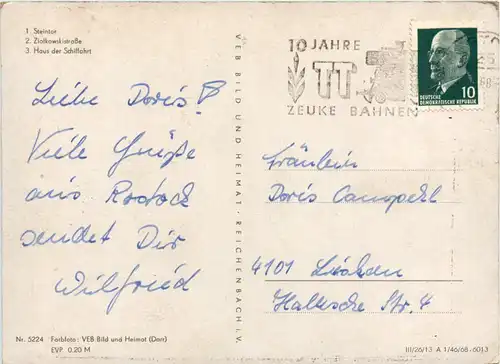 1. Steintor
2. Ziolkowskistraße
3. Haus der Schiffahrt
Liebe Doris!
Viele Grüße
aus Rostock
sendet Dir
Wilfried
Nr. 5224 Farbfoto: VEB Bild und Heimat (Darr)
EVP 0.20 M
VEB BILD UND HEIMAT · REICHENBACH I. V.
10 JAHRE
TT
ZEUKE BAHNEN
10
DEUTSCHE
DEMOKRATISCHE REPUBLIK
Fräulein
Doris
4101
Hallesche Str. 4
III/26/13 A 1/46/68 - 6013